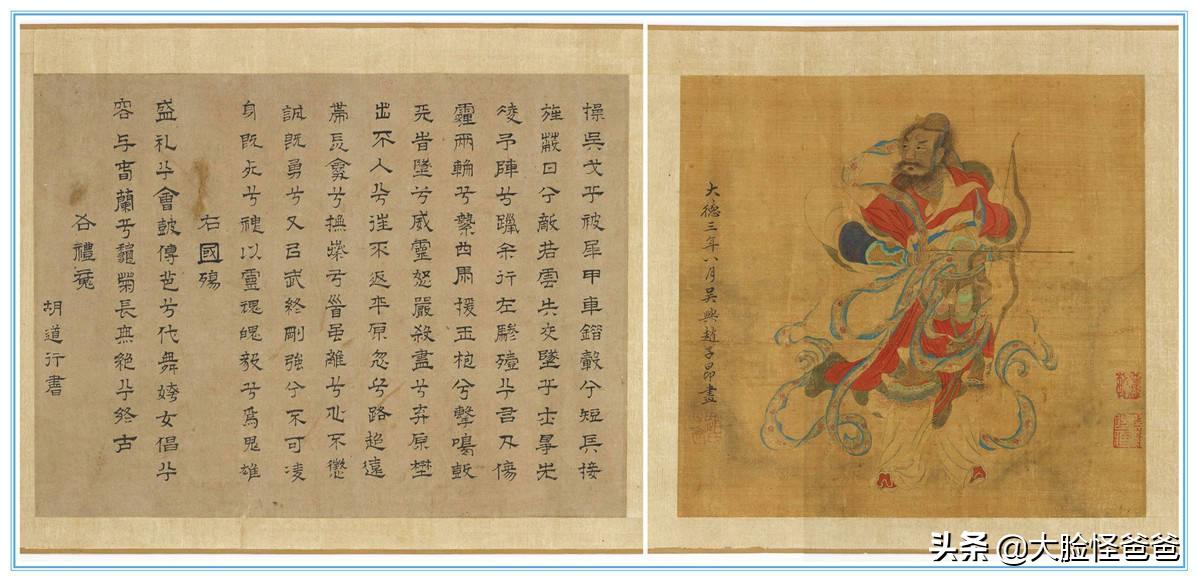 操吳戈兮被犀甲車錯轂兮短兵接
旌蔽日兮敵若雲矢交墜兮士爭先
凌予陣兮躐余行左驂殪兮右刃傷
霾兩輪兮縶四馬援玉枹兮擊鳴鼓
天時墜兮威靈怒嚴殺盡兮棄原壄
出不入兮往不返平原忽兮路超遠
帶長劍兮挾秦弓首雖離兮心不懲
誠既勇兮又以武終剛強兮不可凌
身既死兮神以靈魂魄毅兮為鬼雄
右國殤
盛礼兮會鼓傳芭兮代舞姱女倡兮
容與春蘭兮秋菊長無絕兮終古
右禮魂
胡道行書
大德三年八月吳興趙子昂畫
头条 @大脸怪爸爸